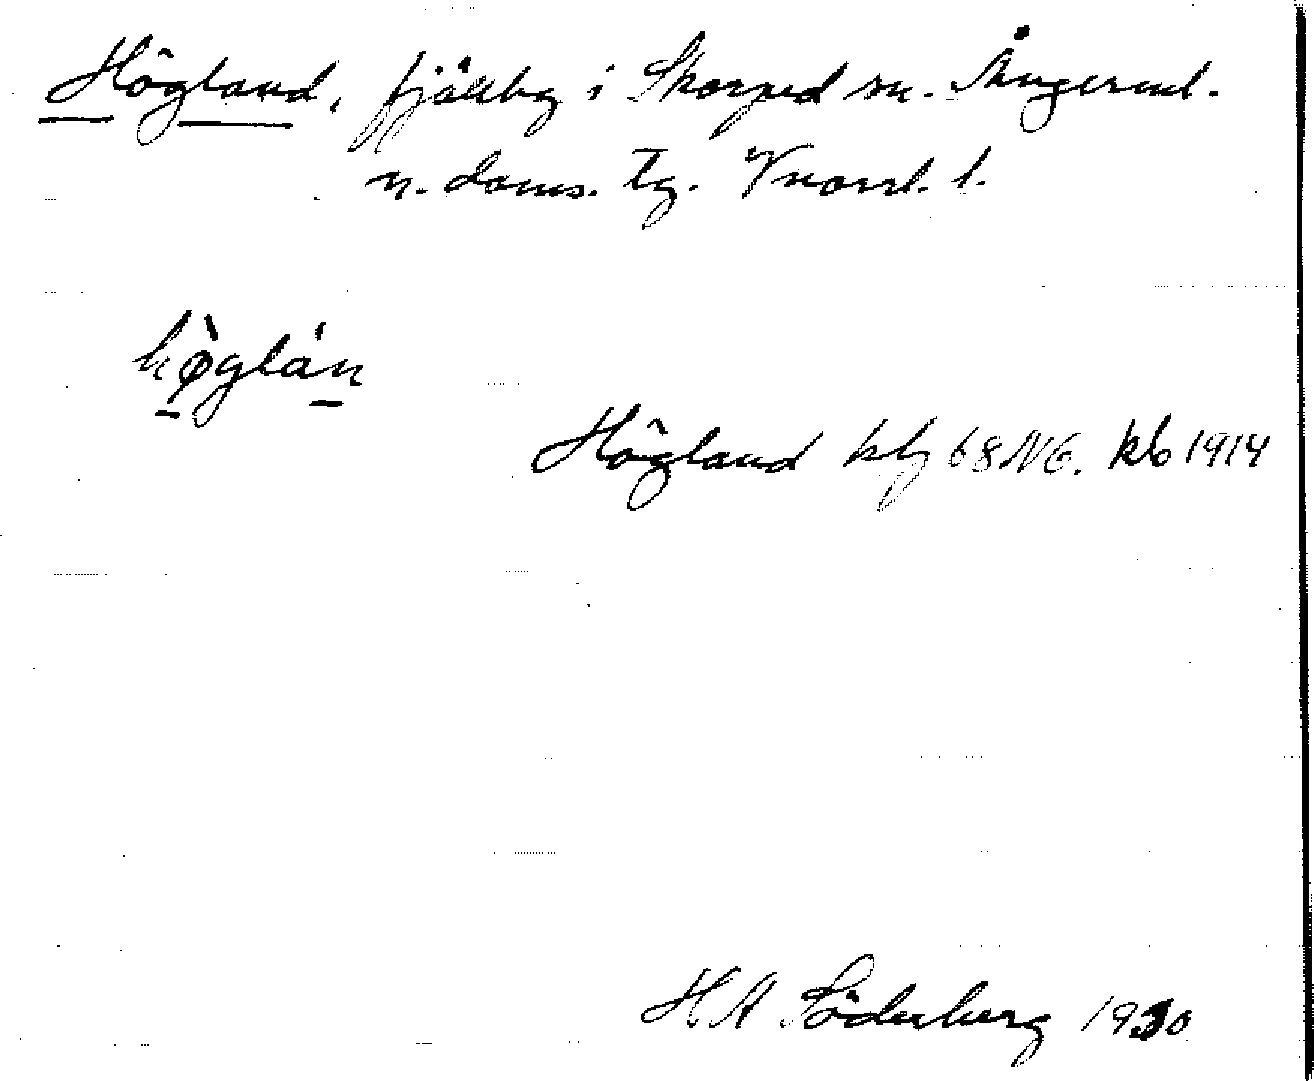 Högland, fjällby i Skorped sn. Ångerml.
n. doms. Tg. Vnorrl. l.
hø̀glán
Högland kbg 68 NG. kb 1914
H A Söderberg 1930